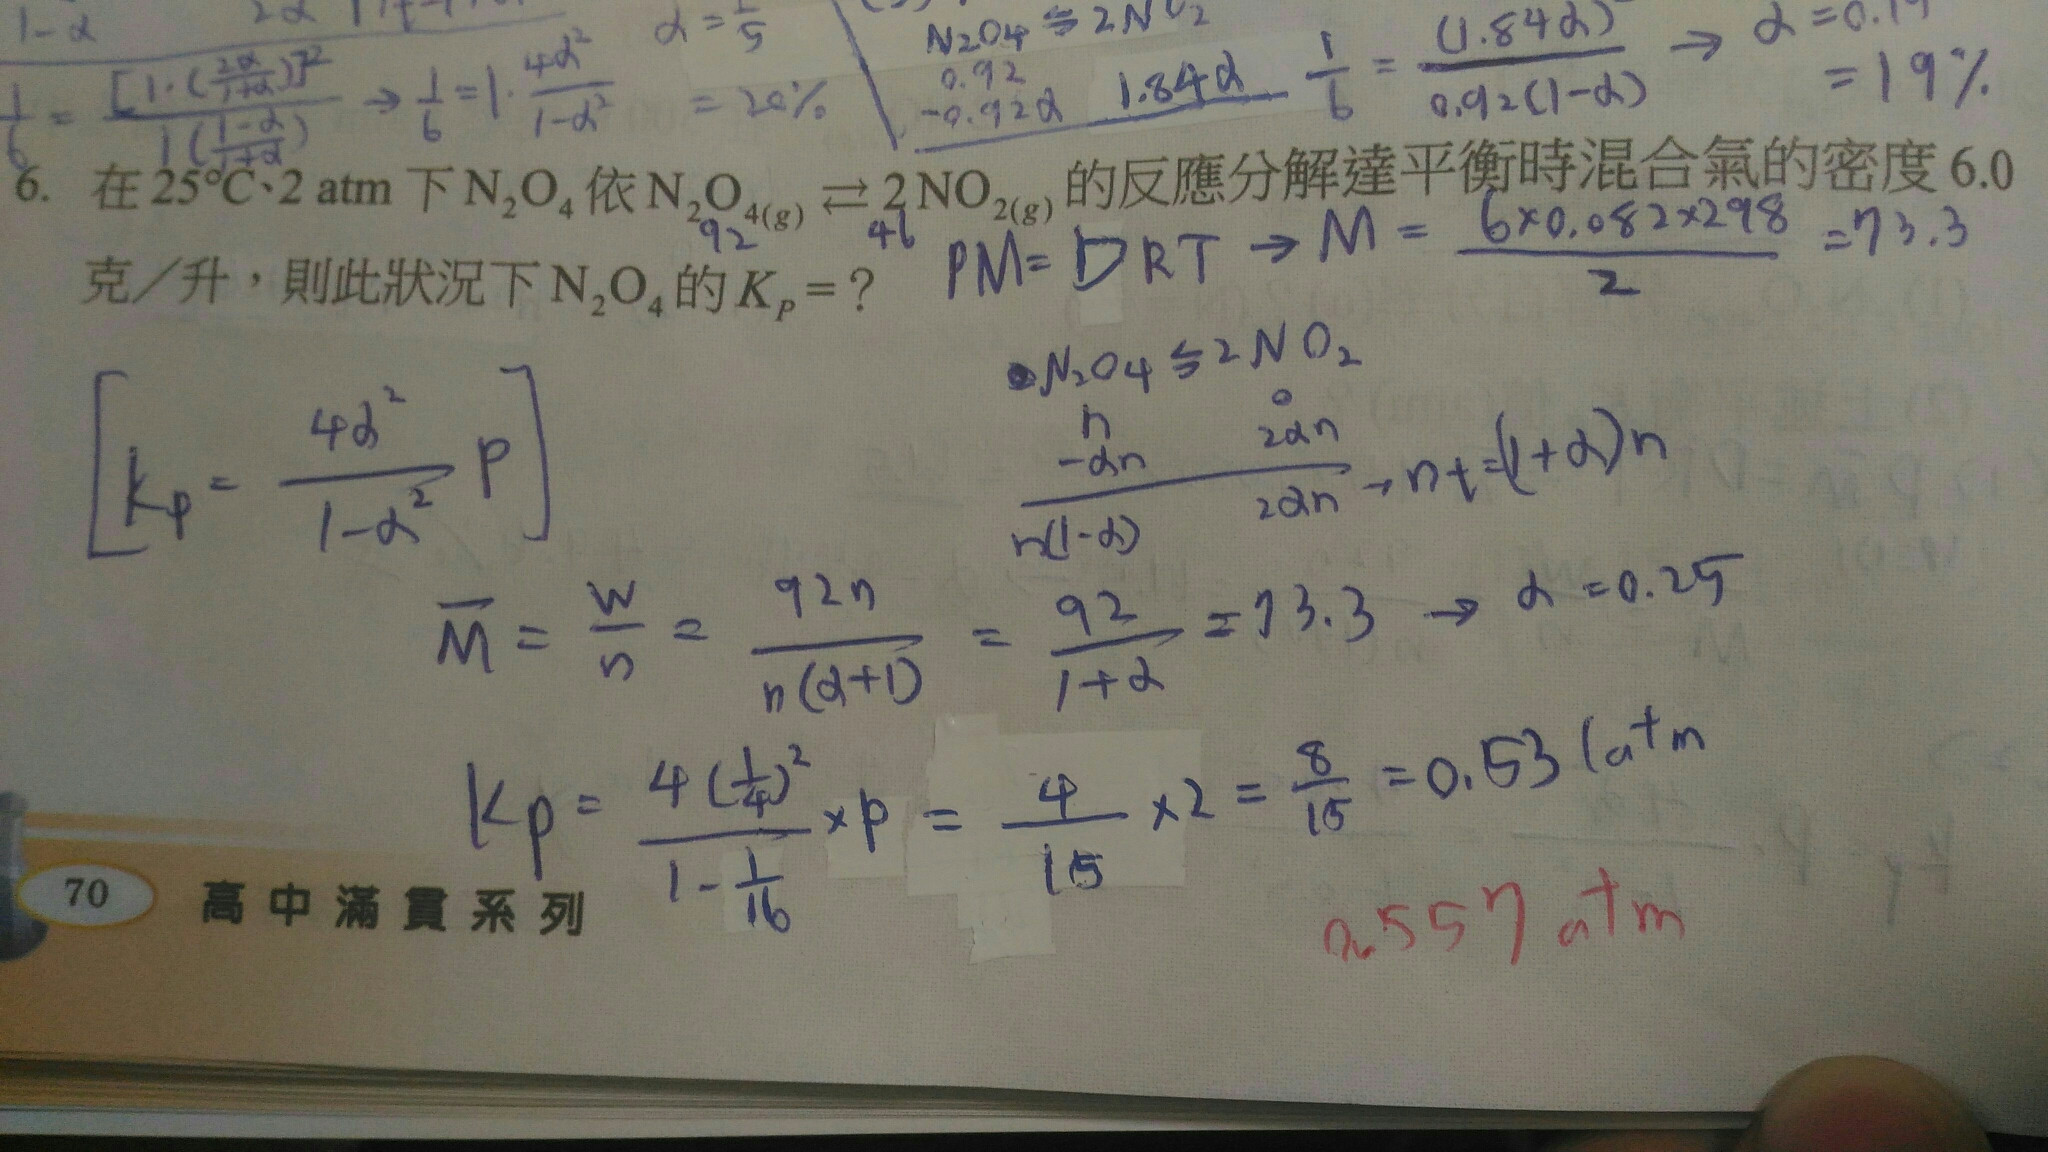 1-α 2α
1/6 = [1·(2α/1+α)]²/1(1-α/1+α) → 1/6 = 1·4α²/1-α² α = 1/5 = 20%
N₂O₄ ⇆ 2NO₂
0.92
-0.92α 1.84α
1/6 = (1.84α)²/0.92(1-α) → α = 0.19 = 19%
6. 在25℃、2 atm 下 N₂O₄ 依 N₂O₄(g) ⇄ 2 NO₂(g) 的反應分解達平衡時混合氣的密度 6.0
92 46
克/升,則此狀況下 N₂O₄ 的 Kₚ = ?
PM = DRT → M = 6×0.082×298/2 = 73.3
N₂O₄ ⇆ 2NO₂
n 0
-αn 2αn
n(1-α) 2αn → nt = (1+α)n
[kp = 4α²/1-α² P]
M̄ = W/n = 92n/n(α+1) = 92/1+α = 73.3 → α = 0.25
Kp = 4(1/4)²/1-1/16 × P = 4/15 × 2 = 8/15 = 0.53 (atm
0.557 atm
70 高中滿貫系列